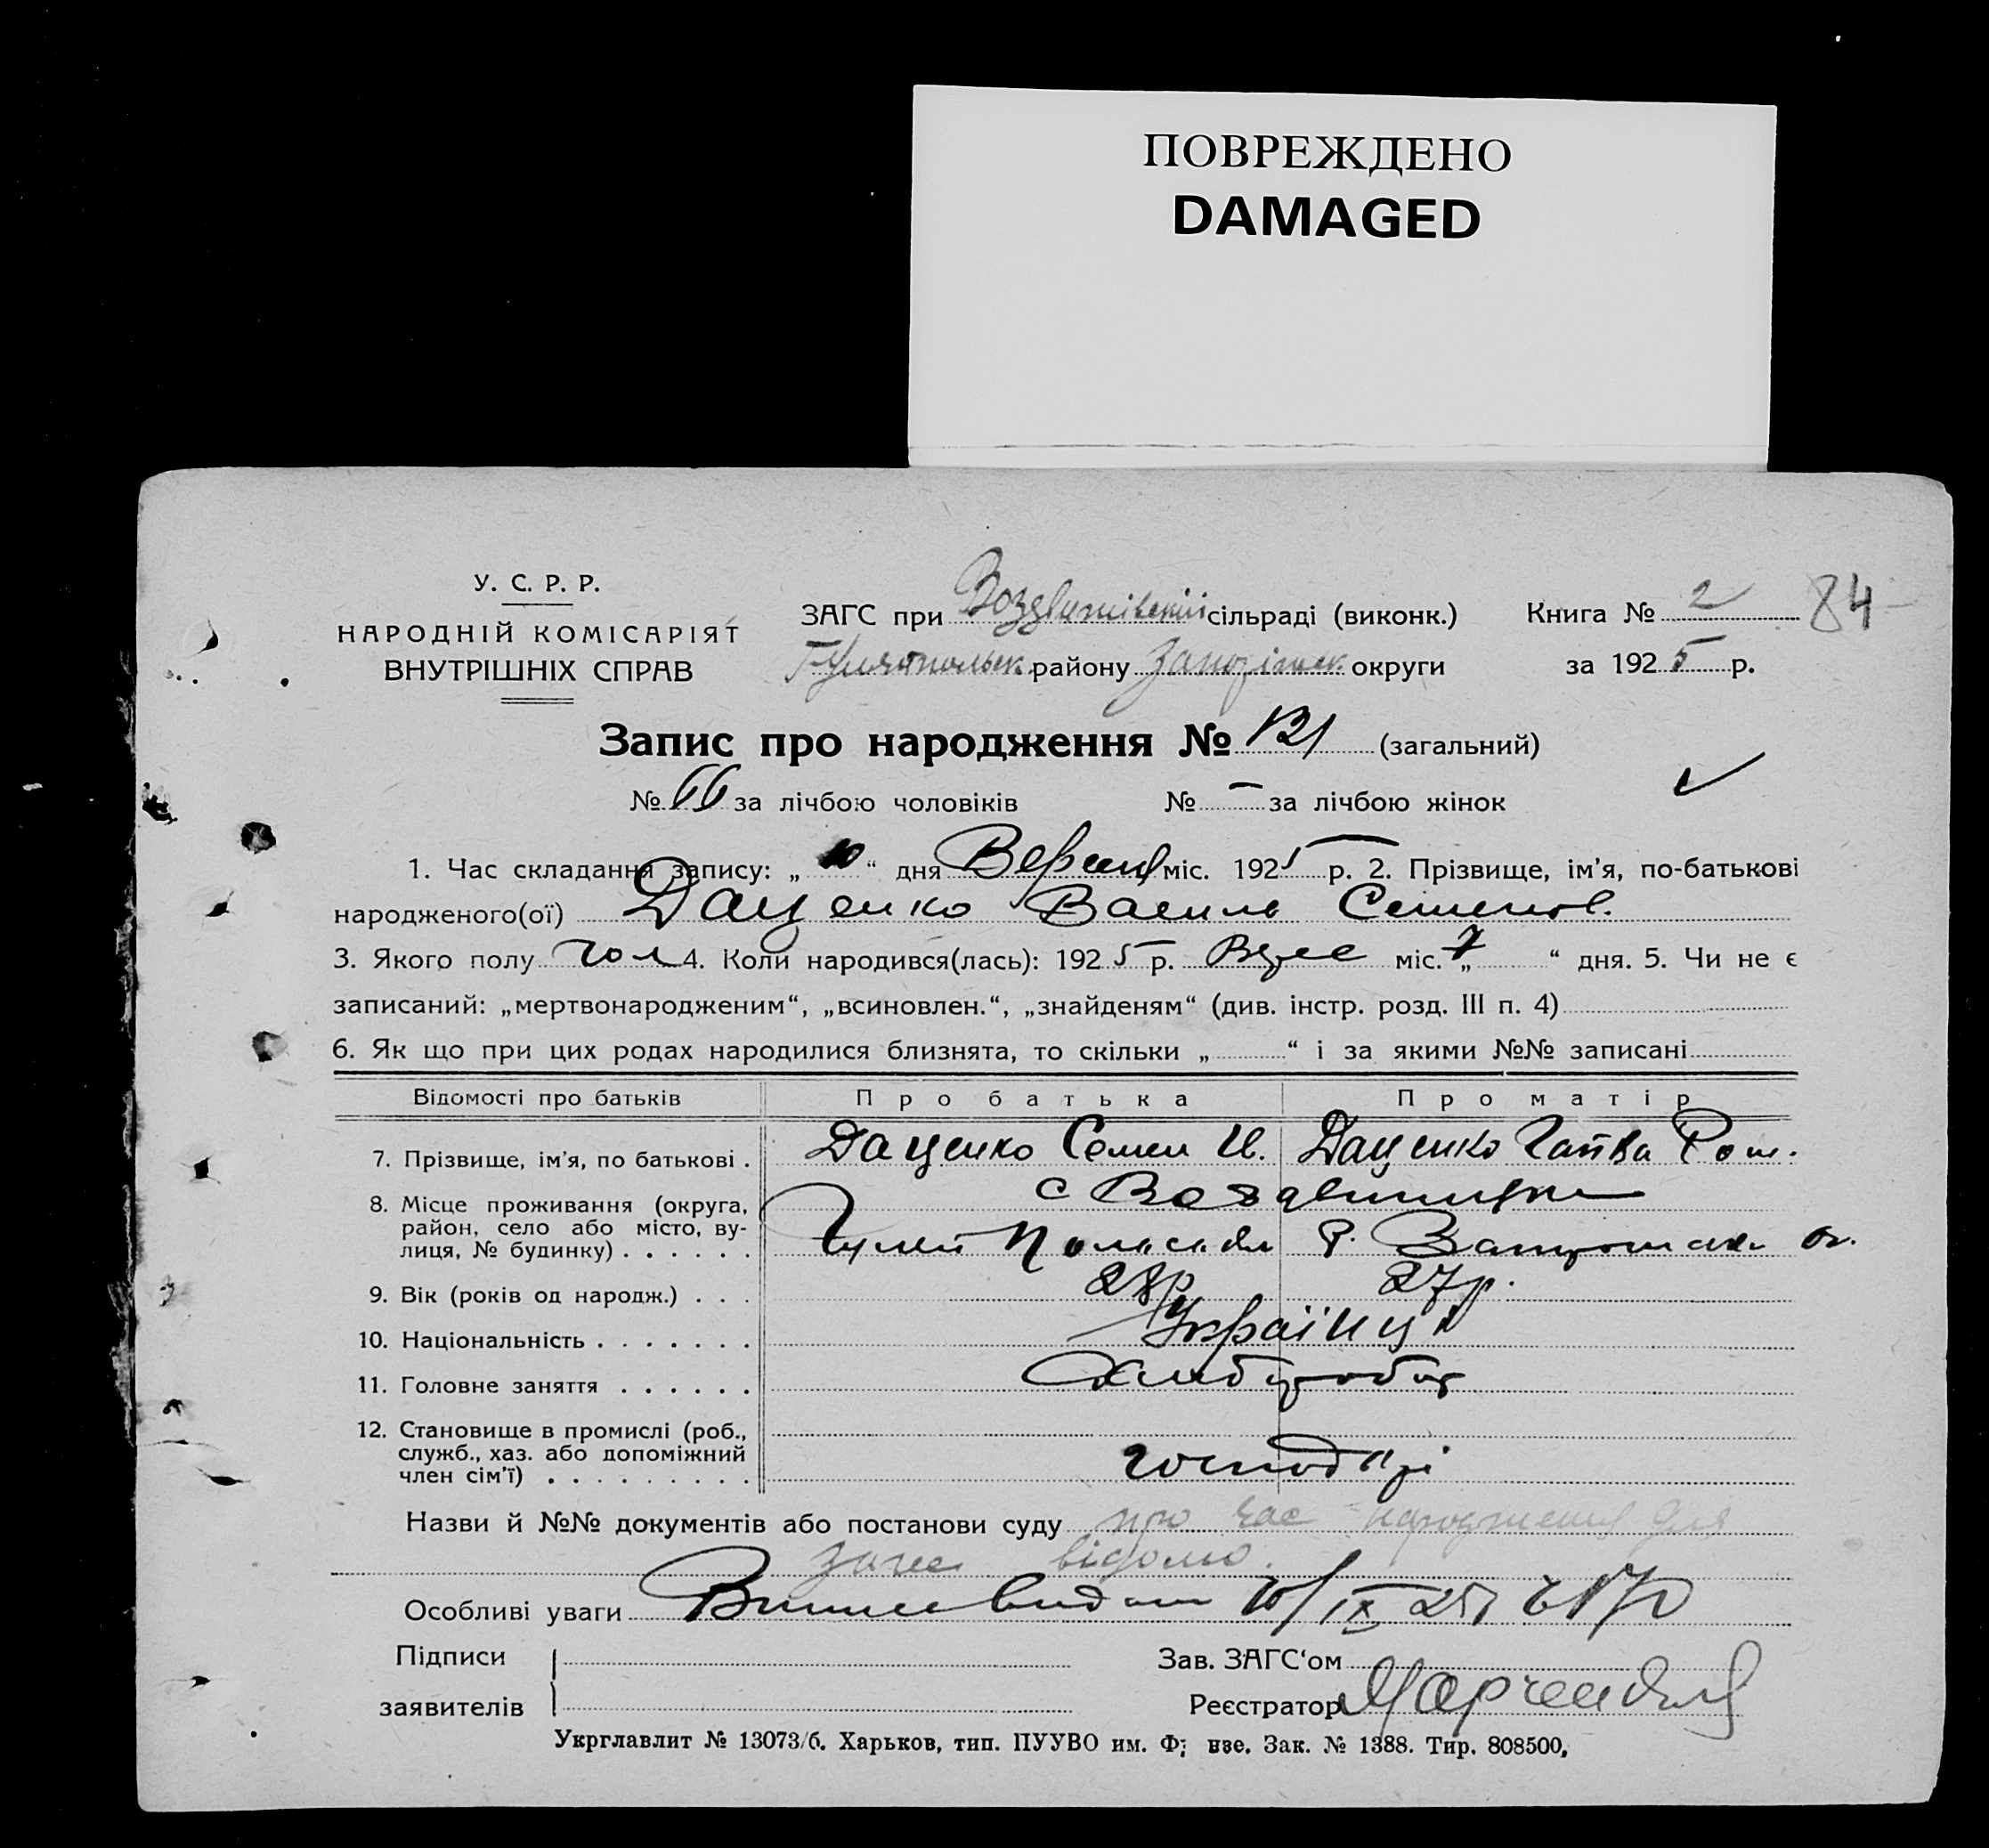 ПОВРЕЖДЕНО
DAMAGED
У. С. Р. Р.
НАРОДНІЙ КОМІСАРІЯТ
ВНУТРІШНІХ СПРАВ
ЗАГС при Воздвижівській сільраді (виконк.)
Гуляйпольськ. району Запоріжск. округи
Книга № 2 84
за 1925 р.
Запис про народження № 121 (загальний)
№ 66 за лічбою чоловіків № – за лічбою жінок
1. Час складання запису: „ 10 “ дня міс. 1925 р. 2. Прізвище, ім'я, по-батькові
народженого(ої) Даценко Василь Семенов.
3. Якого полу чол 4. Коли народився(лась): 1925 р. міс. „ 7 “ дня. 5. Чи не є
записаний: „мертвонародженим“, „всиновлен.“, „знайденям“ (див. інстр. розд. III п. 4)
6. Як що при цих родах народилися близнята, то скільки „ “ і за якими №№ записані
Відомості про батьків Про батька Про матір
7. Прізвище, ім'я, по батькові . Даценко Семен И. Даценко Ром.
8. Місце проживання (округа, район, село або місто, вулиця, № будинку) . . . . . . с
Р. ок.
9. Вік (років од народж.) . . . 28р 27р.
10. Національність . . . . . . . Українці
11. Головне заняття . . . . . . Хлібороби
12. Становище в промислі (роб., служб., хаз. або допоміжний член сім'ї) . . . . . . . . . господарі
Назви й №№ документів або постанови суду про час народження для
загсу відомо.
Особливі уваги видан 10/IX 25 170
Підписи
заявителів
Зав. ЗАГС'ом
Реєстратор
Укрглавлит № 13073/б. Харьков, тип. ПУУВО им. Ф; нзе. Зак. № 1388. Тир. 808500,